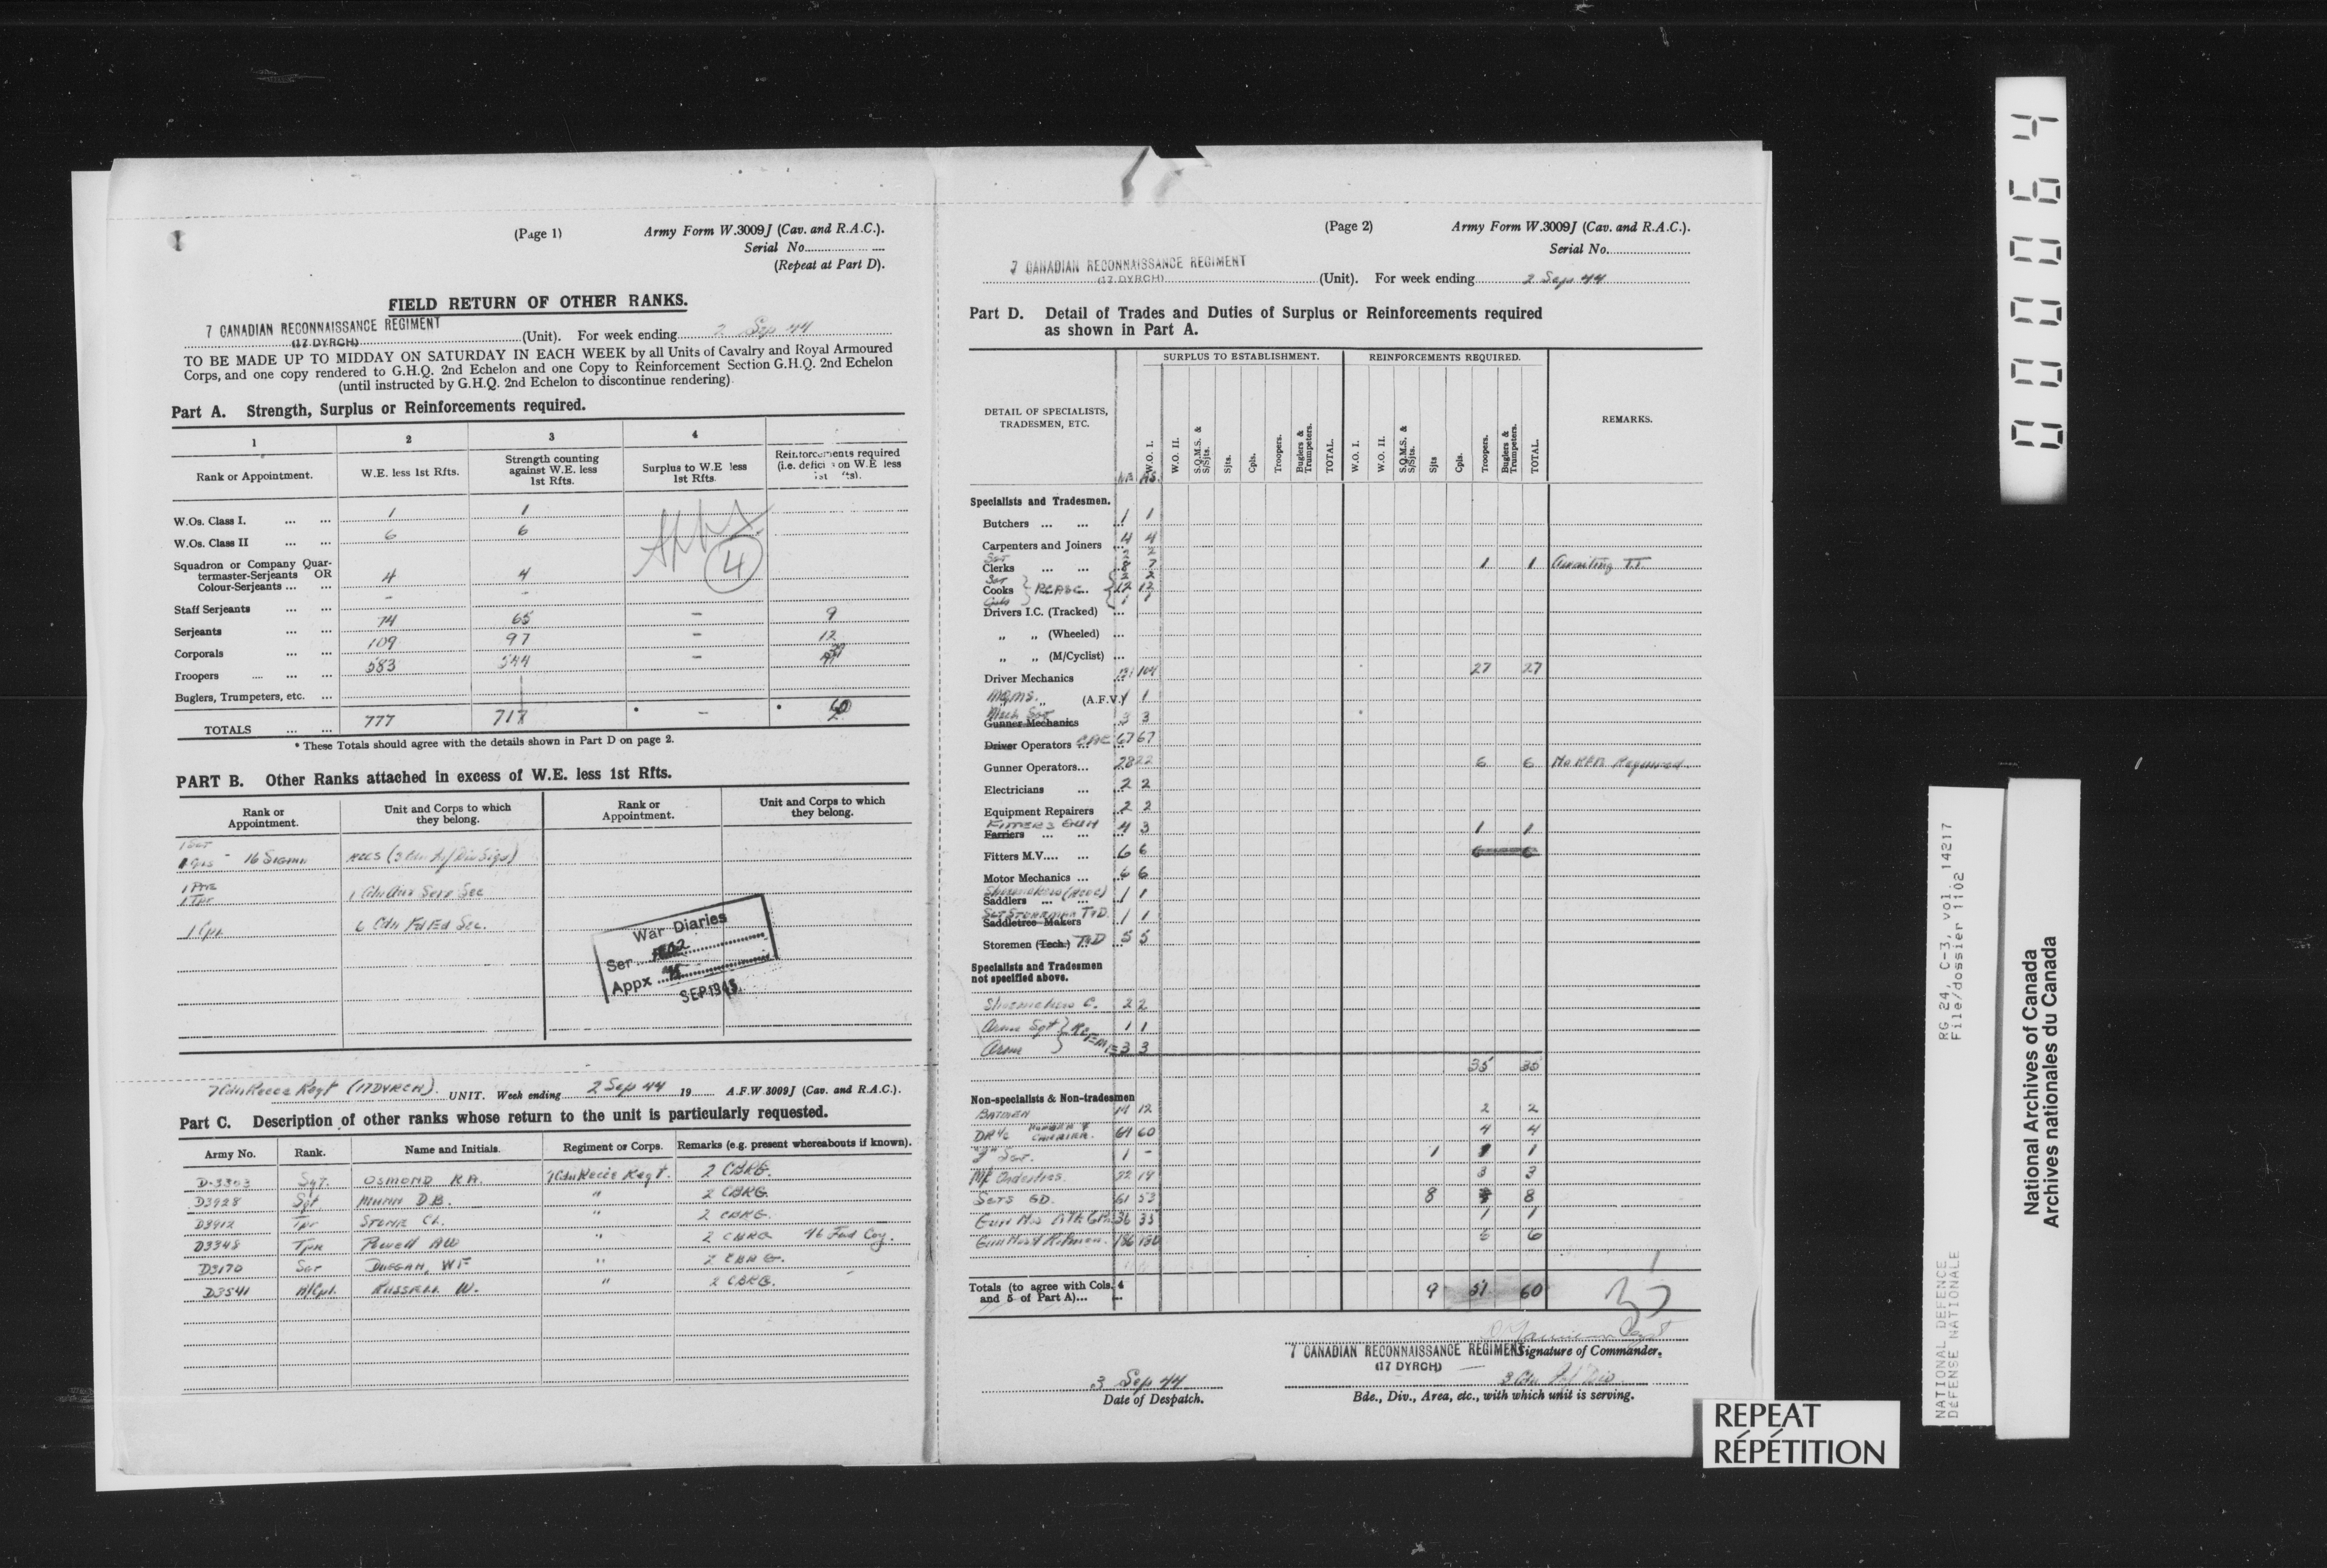 (Page 1)
Army Form W.3009J (Cav. and R.A.C.).
Serial No.
(Repeat at Part D).
FIELD RETURN OF OTHER RANKS.
7 CANADIAN RECONNAISSANCE REGIMENT
(17 DYRCH) (Unit). For week ending 2 Sep 44
TO BE MADE UP TO MIDDAY ON SATURDAY IN EACH WEEK by all Units of Cavalry and Royal Armoured
Corps, and one copy rendered to G.H.Q. 2nd Echelon and one Copy to Reinforcement Section G.H.Q. 2nd Echelon
(until instructed by G.H.Q. 2nd Echelon to discontinue rendering).
Part A. Strength, Surplus or Reinforcements required.
1 2 3 4
Rank or Appointment.
W.E. less 1st Rfts.
Strength counting
against W.E. less
1st Rfts.
Surplus to W.E less
1st Rfts.
Reinforcements required
(i.e. on W.E less
W.Os. Class I. ... ... 1 1
W.Os. Class II ... ... 6 6
Squadron or Company Quar-
termaster-Serjeants OR
Colour-Serjeants ... ... 4 4
Staff Serjeants ... ... - -
Serjeants ... ... 74 65 - 9
Corporals ... ... 109 97 - 12
Troopers ... ... ... 583 544 -
Buglers, Trumpeters, etc. ...
TOTALS ... ... 777 717 * - * 60
4
* These Totals should agree with the details shown in Part D on page 2.
PART B. Other Ranks attached in excess of W.E. less 1st Rfts.
Rank or
Appointment.
Unit and Corps to which
they belong.
Rank or
Appointment.
Unit and Corps to which
they belong.
16 Sigmn RCCS (3 Cdn Inf Div Sigs)
1 Tpr 1 Cdn Aux Serv Sec
1 Cpl 6 Cdn Fd Ed Sec.
War Diaries
Ser
Appx
SEP 194
7 Cdn Recce Regt (17 DYRCH). UNIT. Week ending 2 Sep 44 19 A.F.W 3009J (Cav. and R.A.C.).
Part C. Description of other ranks whose return to the unit is particularly requested.
Army No. Rank. Name and Initials. Regiment or Corps. Remarks (e.g. present whereabouts if known).
D-3303 Sgt. OSMOND R.A. 7 Cdn Recce Regt. 2 CBRG.
D3928 Sgt MUNN D.B. " 2 CBRG
D3912 Tpr STONE CL. " 2 CBRG.
D3348 Tpr Powell AW " 2 CBRG 16 Fwd Coy.
D3170 Sgt DUGGAN, WF " 2 CBRG.
D3541 A/Cpl. RUSSELL W. " 2 CBRG.
(Page 2)
Army Form W.3009J (Cav. and R.A.C.).
Serial No.
7 CANADIAN RECONNAISSANCE REGIMENT
(17 DYRCH) (Unit). For week ending 2 Sep 44
Part D. Detail of Trades and Duties of Surplus or Reinforcements required
as shown in Part A.
DETAIL OF SPECIALISTS,
TRADESMEN, ETC.
SURPLUS TO ESTABLISHMENT. REINFORCEMENTS REQUIRED.
REMARKS.
W.O. I. W.O. II. S.Q.M.S. & S/Sjts. Sjts. Cpls. Troopers. Buglers & Trumpeters. TOTAL.
W.O. I. W.O. II. S.Q.M.S. & S/Sjts. Sjts Cpls. Troopers. Buglers & Trumpeters. TOTAL.
Specialists and Tradesmen.
Butchers ... ... 1 1
Carpenters and Joiners ... 4 4
Sgt 2 2
Clerks ... ... 8 7 1 1 Awaiting T.T.
Sgt 2 2
Cooks RCASC 12 12
1 1
Drivers I.C. (Tracked) ...
" " (Wheeled) ...
" " (M/Cyclist) ...
Driver Mechanics 131 104 27 27
" (A.F.V.) 1 1
Mech Sgt
Gunner Mechanics 3 3
Driver Operators 67 67
Gunner Operators... 28 22 6 6 No RFN Required
Electricians ... 2 2
Equipment Repairers 2 2
FITTERS GUN
Farriers ... ... 4 3 1 1
Fitters M.V.... ... 6 6
Motor Mechanics ... 6 6
Shoemakers (RCOC)
Saddlers ... ... 1 1
SGT STOREMAN T.D.
Saddletree Makers 1 1
Storemen (Tech.) T.D 5 5
Specialists and Tradesmen
not specified above.
Shoemakers C. 2 2
Arm Sgt 1 1
Arm RCEME 3 3
35 35
Non-specialists & Non-tradesmen
BATMEN 14 12 2 2
DR I/C 64 60 4 4
"J" Sgt. 1 - 1 1
M/C Orderlies. 22 19 3 3
SGTS GD. 61 53 8 8
36 35 1 1
186 180 6 6
Totals (to agree with Cols. 4
and 5 of Part A)... ... 9 51 60
7 CANADIAN RECONNAISSANCE REGIMENT
(17 DYRCH)
Signature of Commander.
3 Sep 44
Date of Despatch.
3 Cdn Inf Div
Bde., Div., Area, etc., with which unit is serving.
REPEAT
RÉPÉTITION
000064
NATIONAL DEFENCE RG 24, C-3, vol. 14217
DÉFENSE NATIONALE File/dossier 1102
National Archives of Canada
Archives nationales du Canada